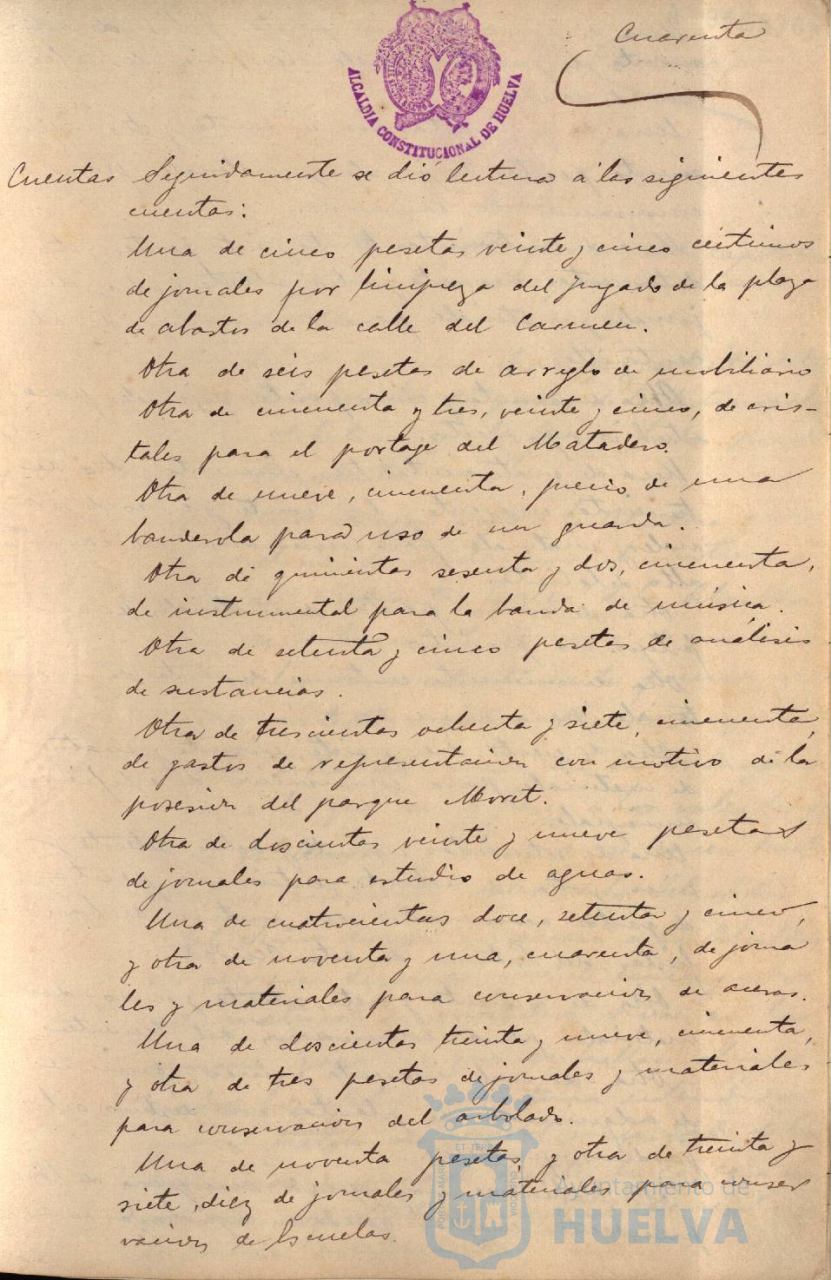 Cuarenta
ALCALDIA CONSTITUCIONAL DE HUELVA
Cuentas Seguidamente se dió lectura á las siguientes
cuentas:
Una de cinco pesetas veinte y cinco céntimos
de jornales por limpieza del juzgado de la plaza
de abastos de la calle del Carmen.
Otra de seis pesetas de arreglo de mobiliario
Otra de cincuenta y tres, veinte y cinco, de cris-
tales para el portage del Matadero.
Otra de nueve, cincuenta, precio de una
banderola para uso de un guarda.
Otra de quinientas sesenta y dos, cincuenta,
de instrumental para la banda de música.
Otra de setenta y cinco pesetas de análisis
de sustancias.
Otra de trescientas ochenta y siete, cincuenta,
de gastos de representacion con motivo de la
posesion del parque Moret.
Otra de doscientas veinte y nueve pesetas
de jornales para estudio de aguas.
Una de cuatrocientas doce, setenta y cinco,
y otra de noventa y una, cuarenta, de jorna
les y materiales para conservacion de aceras.
Una de doscientas treinta y nueve, cincuenta,
y otra de tres pesetas de jornales y materiales
para conservacion del arbolado.
Una de noventa pesetas y otra de treinta y
siete, diez de jornales y materiales para conser
vacion de Escuelas.
Ayuntamiento de
HUELVA